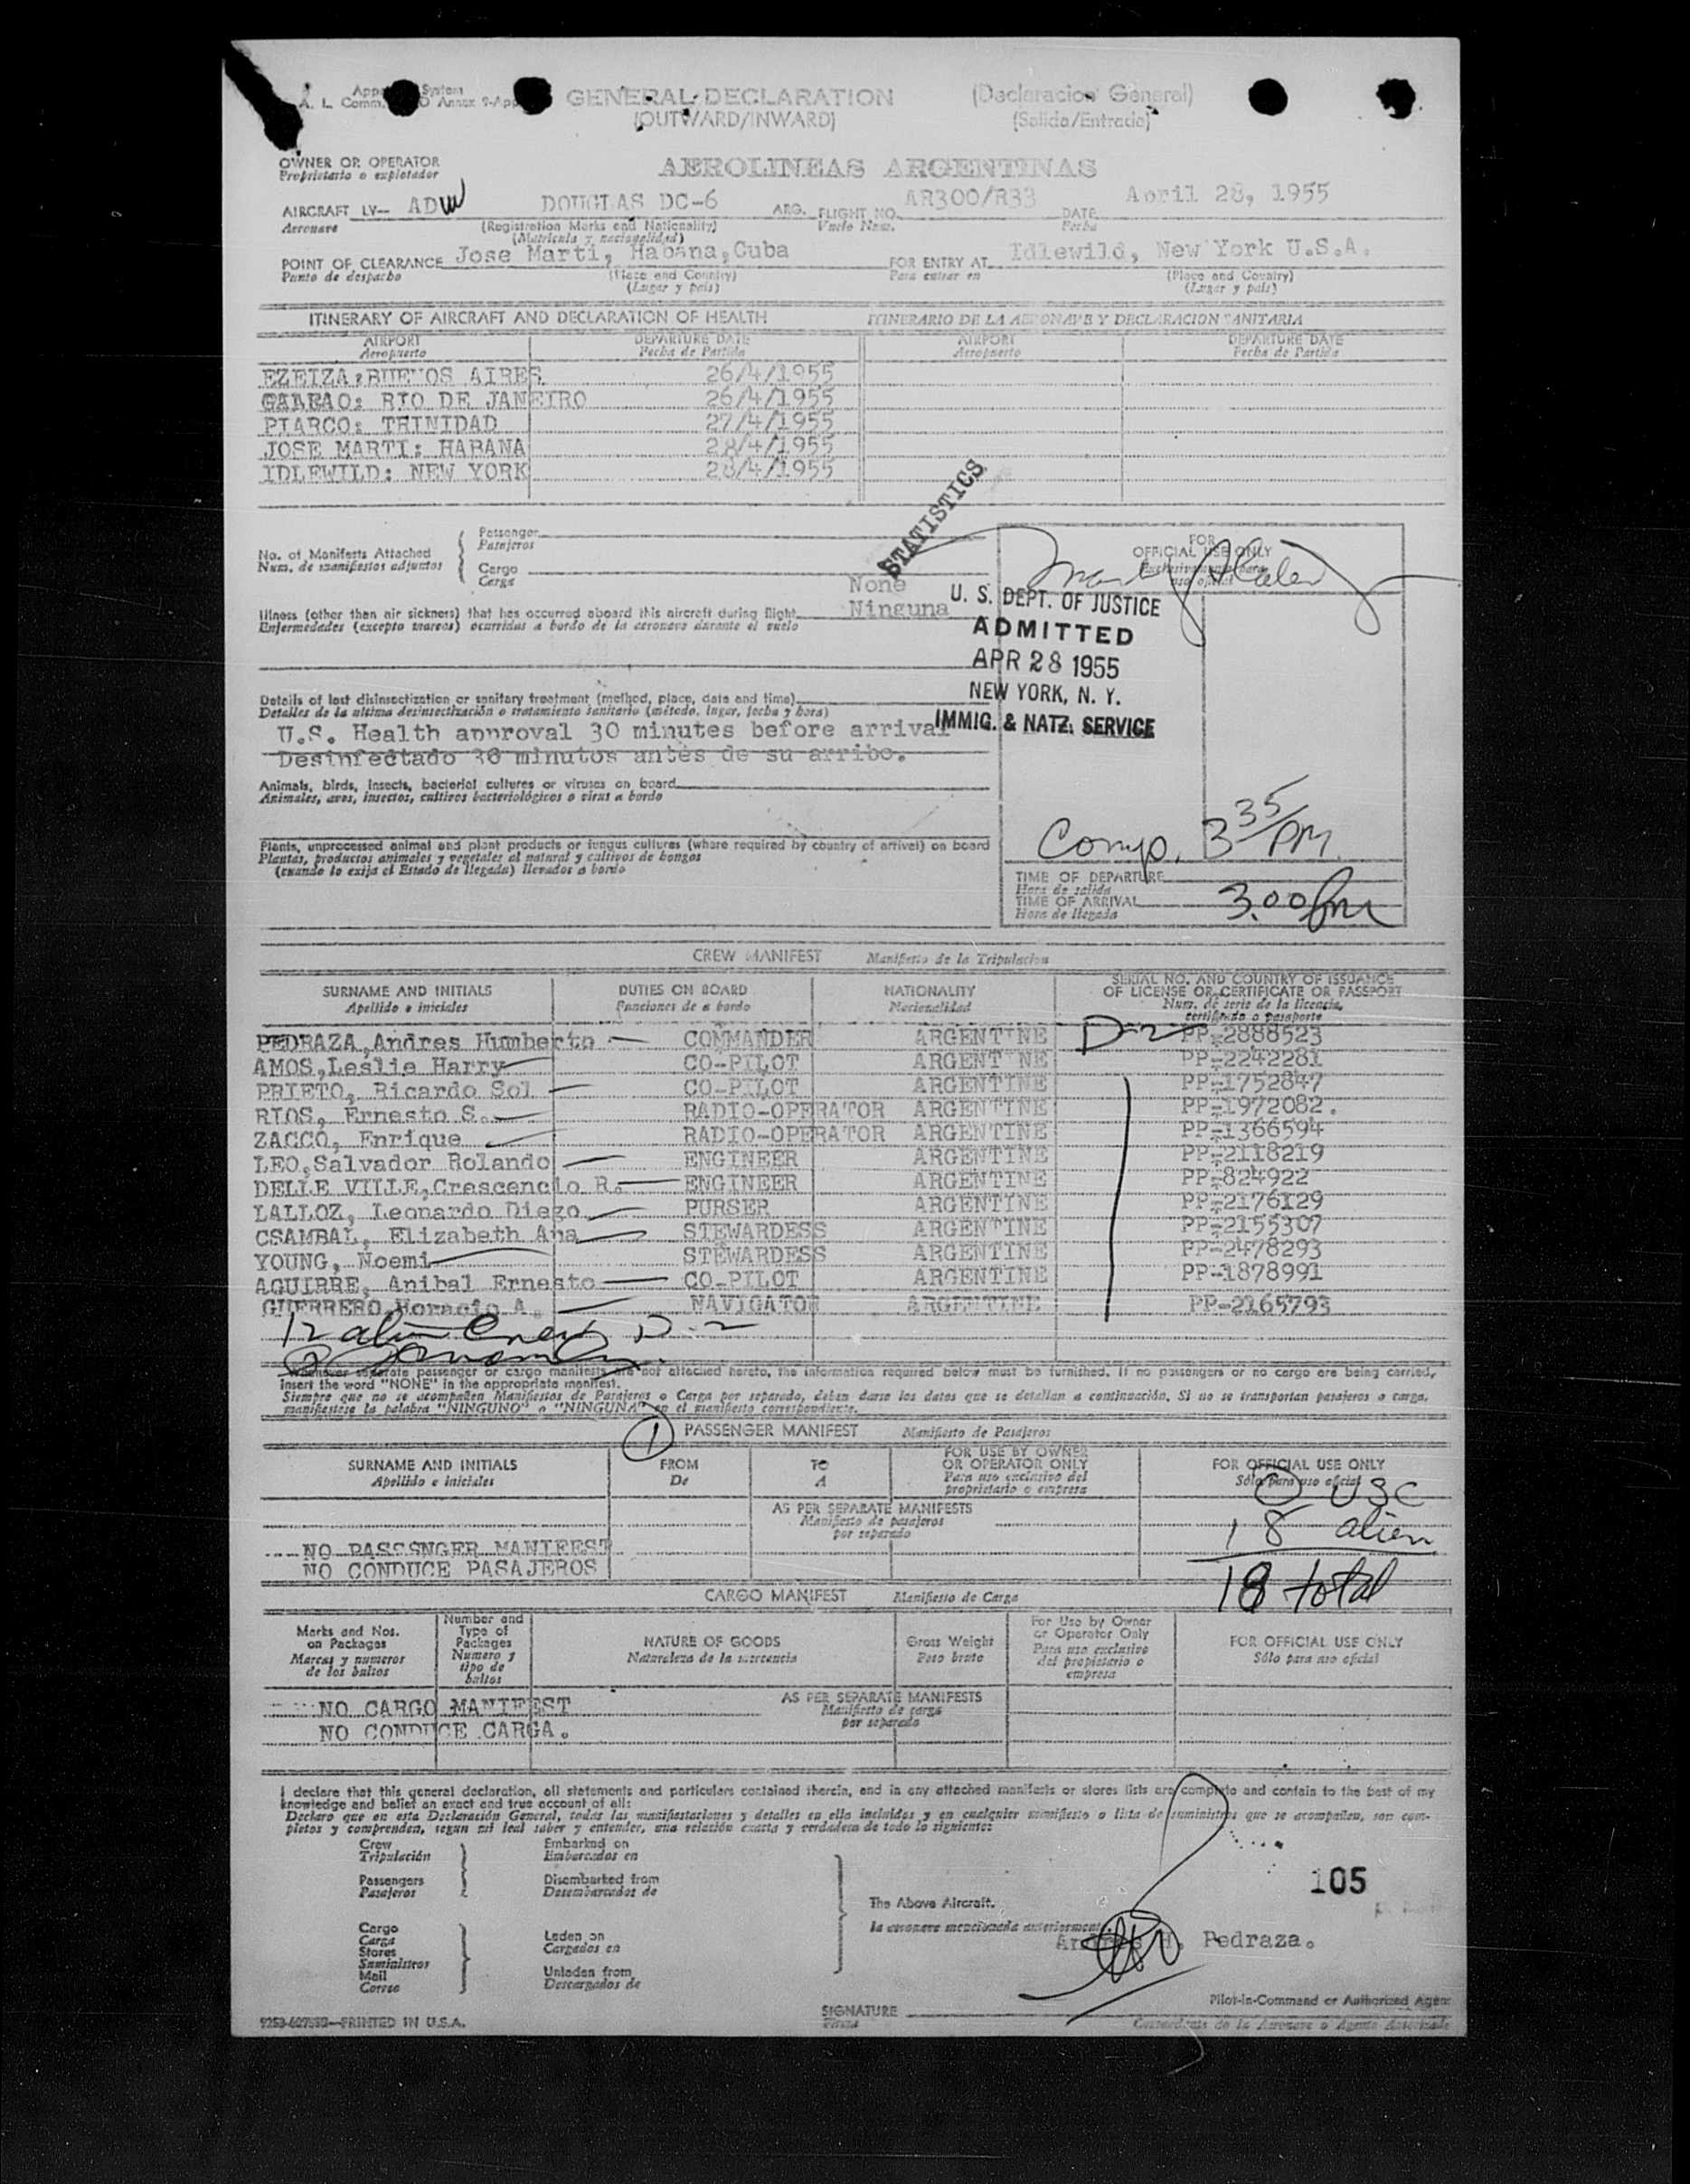 GENERAL DECLARATION (Declaracion General)
(OUTWARD/INWARD) (Salida/Entrada)
OWNER OR OPERATOR
Proprietario o explotador
AEROLINEAS ARGENTINAS
AIRCRAFT LV— ADW DOUGLAS DC-6 ARG. FLIGHT NO. AR300/R33 DATE April 28, 1955
Aeronave (Registration Marks and Nationality) Vuelo Num. Fecha
(Matricula y nacionalidad)
POINT OF CLEARANCE Jose Marti, Habana, Cuba FOR ENTRY AT Idlewild, New York U.S.A.
Punto de despacho (Place and Country) Para entrar en (Place and Country)
(Lugar y pais) (Lugar y pais)
ITINERARY OF AIRCRAFT AND DECLARATION OF HEALTH ITINERARIO DE LA AERONAVE Y DECLARACION SANITARIA
AIRPORT DEPARTURE DATE AIRPORT DEPARTURE DATE
Aeropuerto Fecha de Partida Aeropuerto Fecha de Partida
EZEIZA: BUENOS AIRES 26/4/1955
GALEAO: RIO DE JANEIRO 26/4/1955
PIARCO: TRINIDAD 27/4/1955
JOSE MARTI: HABANA 28/4/1955
IDLEWILD: NEW YORK 28/4/1955
STATISTICS
No. of Manifests Attached
Num. de manifiestos adjuntos
Passenger
Pasajeros
Cargo
Carga
FOR
OFFICIAL USE ONLY
Exclusivamente para
uso oficial
None
Illness (other than air sickness) that has occurred aboard this aircraft during flight Ninguna
Enfermedades (excepto mareos) ocurridas a bordo de la aeronave durante el vuelo
U. S. DEPT. OF JUSTICE
ADMITTED
APR 28 1955
NEW YORK, N. Y.
IMMIG. & NATZ. SERVICE
Details of last disinsectization or sanitary treatment (method, place, date and time)
Detalles de la ultima desinsectización o tratamiento sanitario (método, lugar, fecha y hora)
U.S. Health approval 30 minutes before arrival
Desinfectado 30 minutos antes de su arribo.
Animals, birds, insects, bacterial cultures or viruses on board
Animales, aves, insectos, cultivos bacteriológicos o virus a bordo
Plants, unprocessed animal and plant products or fungus cultures (where required by country of arrival) on board
Plantas, productos animales y vegetales al natural y cultivos de hongos
(cuando lo exija el Estado de llegada) llevados a bordo
Comp. 3 35/PM.
TIME OF DEPARTURE
Hora de salida
TIME OF ARRIVAL 3.00 pm
Hora de llegada
CREW MANIFEST Manifiesto de la Tripulacion
SURNAME AND INITIALS DUTIES ON BOARD NATIONALITY SERIAL NO. AND COUNTRY OF ISSUANCE
OF LICENSE OR CERTIFICATE OR PASSPORT
Apellido e iniciales Funciones de a bordo Nacionalidad Num. de serie de la licencia,
certificado o pasaporte
PEDRAZA, Andres Humberto COMMANDER ARGENTINE D-2 PP-2888523
AMOS, Leslie Harry CO-PILOT ARGENTINE PP-2242281
PRIETO, Ricardo Sol CO-PILOT ARGENTINE PP-1752847
RIOS, Ernesto S. RADIO-OPERATOR ARGENTINE PP-1972082.
ZACCO, Enrique RADIO-OPERATOR ARGENTINE PP-1366594
LEO, Salvador Rolando ENGINEER ARGENTINE PP-2118219
DELLE VILLE, Crescencio R. ENGINEER ARGENTINE PP-824922
LALLOZ, Leonardo Diego PURSER ARGENTINE PP-2176129
CSAMBAL, Elizabeth Ana STEWARDESS ARGENTINE PP-2155307
YOUNG, Noemi STEWARDESS ARGENTINE PP-2478293
AGUIRRE, Anibal Ernesto CO-PILOT ARGENTINE PP-1878991
GUERRERO, Horacio A. NAVIGATOR ARGENTINE PP-2165793
12 alien Crew D-2
Whenever separate passenger or cargo manifests are not attached hereto, the information required below must be furnished. If no passengers or no cargo are being carried,
insert the word "NONE" in the appropriate manifest.
Siempre que no se acompañen Manifiestos de Pasajeros o Carga por separado, deben darse los datos que se detallan a continuación. Si no se transportan pasajeros o carga,
manifiestese la palabra "NINGUNO" o "NINGUNA" en el manifiesto correspondiente.
1 PASSENGER MANIFEST Manifiesto de Pasajeros
SURNAME AND INITIALS FROM TO FOR USE BY OWNER
OR OPERATOR ONLY FOR OFFICIAL USE ONLY
Apellido e iniciales De A Para uso exclusivo del
proprietario o empresa Sólo para uso oficial
0 USC
AS PER SEPARATE MANIFESTS
Manifiesto de pasajeros
por separado
18 alien
NO PASSSNGER MANIFEST
NO CONDUCE PASAJEROS
18 total
CARGO MANIFEST Manifiesto de Carga
Marks and Nos.
on Packages
Marcas y numeros
de los bultos
Number and
Type of
Packages
Numero y
tipo de
bultos
NATURE OF GOODS
Naturaleza de la mercancia
Gross Weight
Peso bruto
For Use by Owner
or Operator Only
Para uso exclusivo
del propietario o
empresa
FOR OFFICIAL USE ONLY
Sólo para uso oficial
AS PER SEPARATE MANIFESTS
Manifiesto de carga
por separado
NO CARGO MANIFEST
NO CONDUCE CARGA.
I declare that this general declaration, all statements and particulars contained therein, and in any attached manifests or stores lists are complete and contain to the best of my
knowledge and belief an exact and true account of all:
Declaro que en esta Declaración General, todas las manifestaciones y detalles en ella incluidos y en cualquier manifiesto o lista de suministros que se acompañen, son com-
pletos y comprenden, segun mi leal saber y entender, una relación exacta y verdadera de todo lo siguiente:
Crew
Tripulación
Passengers
Pasajeros
Cargo
Carga
Stores
Suministros
Mail
Correo
Embarked on
Embarcados en
Disembarked from
Desembarcados de
Laden on
Cargados en
Unladen from
Descargados de
The Above Aircraft.
la aeronave mencionada anteriormente.
105
Andres H. Pedraza.
Pilot-in-Command or Authorized Agent
SIGNATURE
Firma
Comandante de la Aeronave o Agente Autorizado
PRINTED IN U.S.A.